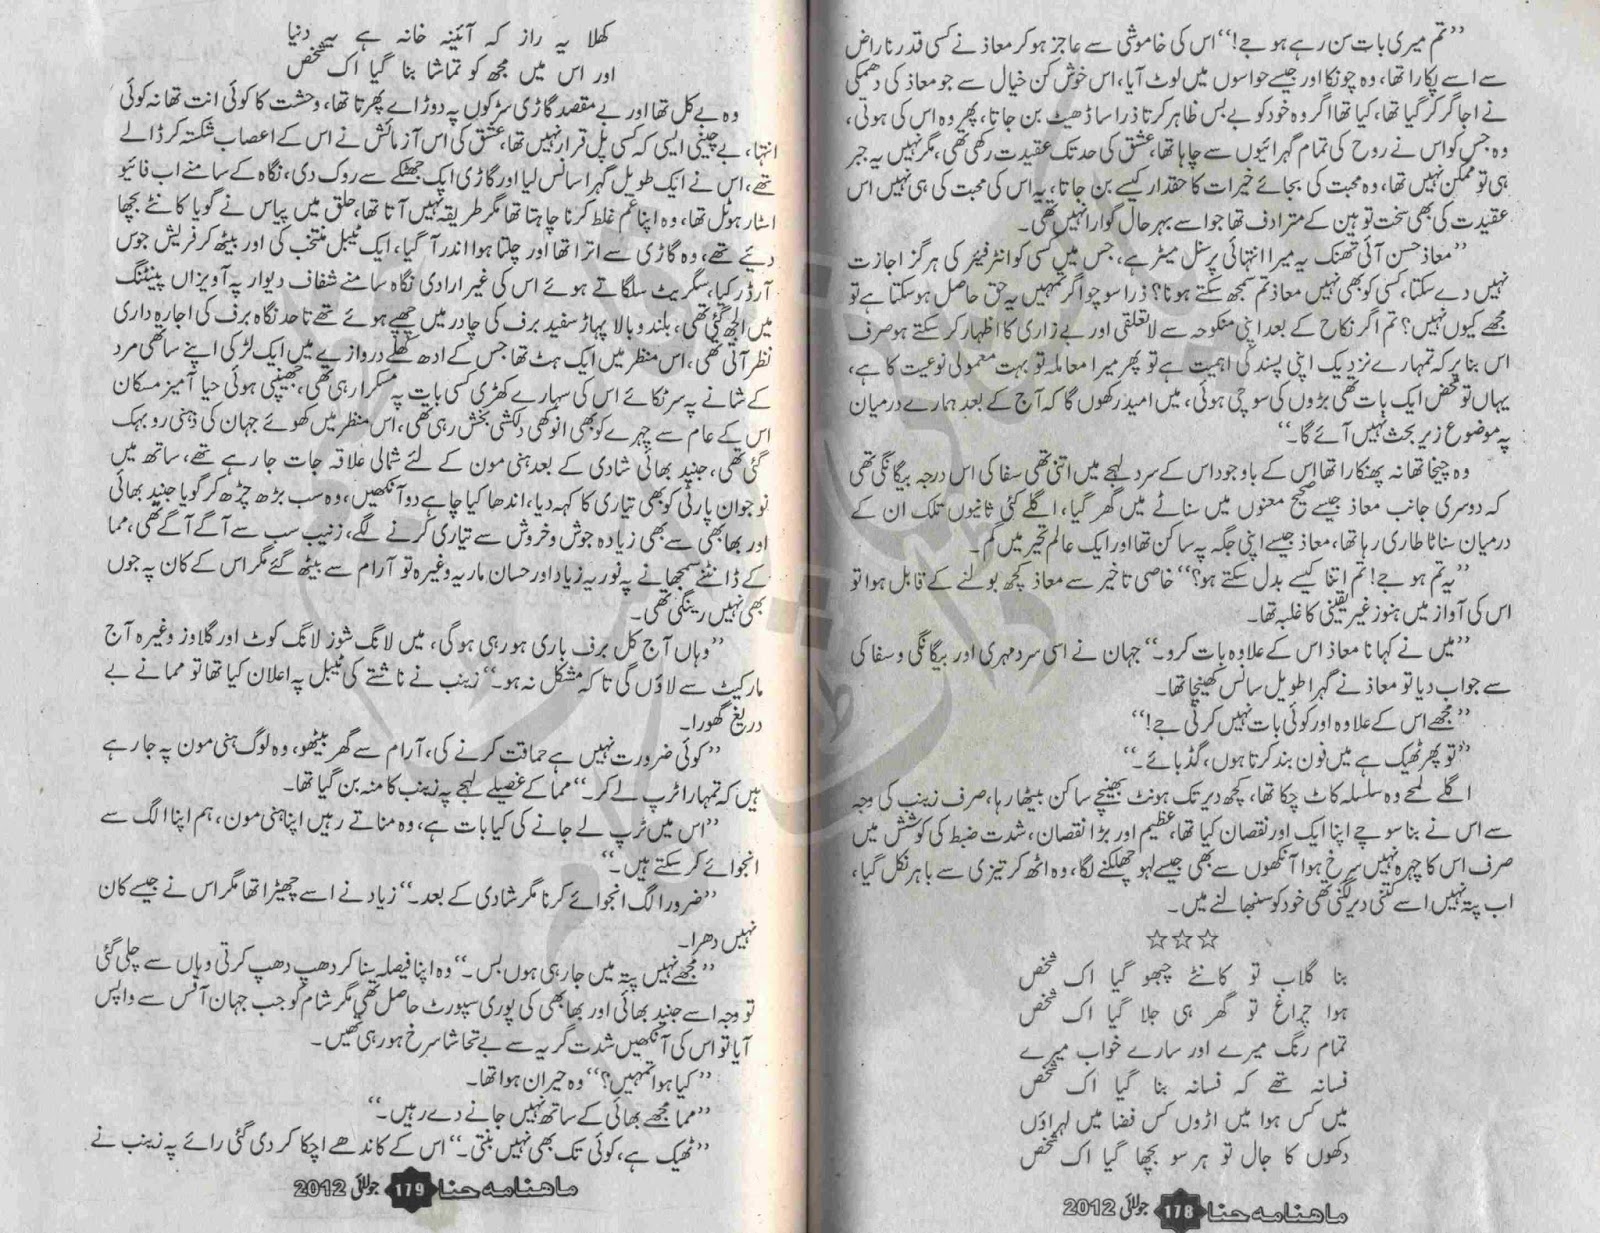 ”تم میری بات سن رہے ہو جے!“ اس کی خاموشی سے عاجز ہو کر معاذ نے کسی قدر ناراض
سے اسے پکارا تھا، وہ چونکا اور جیسے حواسوں میں لوٹ آیا، اس خوش کن خیال سے جو معاذ کی دھمکی
نے اجاگر کر گیا تھا، کیا تھا اگر وہ خود کو بے بس ظاہر کرتا ذرا سا ڈھیٹ بن جاتا، پھر وہ اس کی ہوتی،
وہ جس کو اس نے روح کی تمام گہرائیوں سے چاہا تھا، عشق کی حد تک عقیدت رکھی تھی، مگر نہیں یہ جبر
ہی تو ممکن نہیں تھا، وہ محبت کی بجائے خیرات کا حقدار کیسے بن جاتا، یہ اس کی محبت کی ہی نہیں اس
عقیدت کی بھی سخت توہین کے مترادف تھا جو اسے بہر حال گوارا نہیں تھی۔
”معاذ حسن آئی تھنک یہ میرا انتہائی پرسنل میٹر ہے، جس میں کسی کو انٹرفیئر کی ہرگز اجازت
نہیں دے سکتا، کسی کو بھی نہیں معاذ تم سمجھ سکتے ہو نا؟ ذرا سوچو اگر تمہیں یہ حق حاصل ہو سکتا ہے تو
مجھے کیوں نہیں؟ تم اگر نکاح کے بعد اپنی منکوحہ سے لاتعلقی اور بے زاری کا اظہار کر سکتے ہو صرف
اس بنا پر کہ تمہارے نزدیک اپنی پسند کی اہمیت ہے تو پھر میرا معاملہ تو بہت معمولی نوعیت کا ہے،
یہاں تو محض ایک بات تھی بڑوں کی سوچی ہوئی، میں امید رکھوں گا کہ آج کے بعد ہمارے درمیان
یہ موضوع زیر بحث نہیں آئے گا۔“
وہ چیخا تھا نہ پھنکارا تھا اس کے باوجود اس کے سرد لہجے میں اتنی تھی سفاکی اس درجہ بیگانگی تھی
کہ دوسری جانب معاذ جیسے صحیح معنوں میں سناٹے میں گھر گیا، اگلے کئی ثانیوں تلک ان کے
درمیان سناٹا طاری رہا تھا، معاذ جیسے اپنی جگہ پہ ساکن تھا اور ایک عالم تحیر میں گم۔
”یہ تم ہو جے! تم اتنا کیسے بدل سکتے ہو؟“ خاصی تاخیر سے معاذ کچھ بولنے کے قابل ہوا تو
اس کی آواز میں ہنوز غیر یقینی کا غلبہ تھا۔
”میں نے کہا نا معاذ اس کے علاوہ بات کرو۔“ جہان نے اسی سرد مہری اور بیگانگی و سفاکی
سے جواب دیا تو معاذ نے گہرا طویل سانس کھینچا تھا۔
”مجھے اس کے علاوہ اور کوئی بات نہیں کرنی جے!“
”تو پھر ٹھیک ہے میں فون بند کرتا ہوں، گڈ بائے۔“
اگلے لمحے وہ سلسلہ کاٹ چکا تھا، کچھ دیر تک ہونٹ بھینچے ساکن بیٹھا رہا، صرف زینب کی وجہ
سے اس نے بنا سوچے اپنا ایک اور نقصان کیا تھا، عظیم اور بڑا نقصان، شدت ضبط کی کوشش میں
صرف اس کا چہرہ نہیں سرخ ہوا آنکھوں سے بھی جیسے لہو چھلکنے لگا، وہ اٹھ کر تیزی سے باہر نکل گیا،
اب پتہ نہیں اسے کتنی دیر لگنی تھی خود کو سنبھالنے میں۔
☆☆☆
بنا گلاب تو کانٹے چبھو گیا اک شخص
ہوا چراغ تو گھر ہی جلا گیا اک شخص
تمام رنگ میرے اور سارے خواب میرے
فسانہ تھے کہ فسانہ بنا گیا اک شخص
میں کس ہوا میں اڑوں کس فضا میں لہراؤں
دکھوں کا جال تو ہر سو بچھا گیا اک شخص
ماہنامہ حنا 178 جولائی 2012
کھلا یہ راز کہ آئینہ خانہ ہے یہ دنیا
اور اس میں مجھ کو تماشا بنا گیا اک شخص
وہ بے کل تھا اور بے مقصد گاڑی سڑکوں پہ دوڑائے پھرتا تھا، وحشت کا کوئی انت تھا نہ کوئی
انتہا، بے چینی ایسی کہ کسی پل قرار نہیں تھا، عشق کی اس آزمائش نے اس کے اعصاب شکستہ کر ڈالے
تھے، اس نے ایک طویل گہرا سانس لیا اور گاڑی ایک جھٹکے سے روک دی، نگاہ کے سامنے اب فائیو
اسٹار ہوٹل تھا، وہ اپنا غم غلط کرنا چاہتا تھا مگر طریقہ نہیں آتا تھا، حلق میں پیاس نے گویا کانٹے بچھا
دیئے تھے، وہ گاڑی سے اترا تھا اور چلتا ہوا اندر آ گیا، ایک ٹیبل منتخب کی اور بیٹھ کر فریش جوس
آرڈر کیا، سگریٹ سلگاتے ہوئے اس کی غیر ارادی نگاہ سامنے شفاف دیوار پہ آویزاں پینٹنگ
میں الجھ گئی تھی، بلند و بالا پہاڑ سفید برف کی چادر میں چھپے ہوئے تھے تا حد نگاہ برف کی اجارہ داری
نظر آتی تھی، اس منظر میں ایک ہٹ تھا جس کے ادھ کھلے دروازے میں ایک لڑکی اپنے ساتھی مرد
کے شانے پہ سر ٹکائے اس کی سہارے کھڑی کسی بات پہ مسکرا رہی تھی، جھینپی ہوئی حیا آمیز مسکان
اس کے عام سے چہرے کو بھی انوکھی دلکشی بخش رہی تھی، اس منظر میں کھوئے جہان کی ذہنی رو بہک
گئی تھی، جنید بھائی شادی کے بعد ہنی مون کے لئے شمالی علاقہ جات جا رہے تھے، ساتھ میں
نوجوان پارٹی کو بھی تیاری کا کہہ دیا، اندھا کیا چاہے دو آنکھیں، وہ سب بڑھ چڑھ کر گویا جنید بھائی
اور بھابھی سے بھی زیادہ جوش و خروش سے تیاری کرنے لگے، زینب سب سے آگے آگے تھی، مما
کے ڈانٹنے سمجھانے پہ نوریہ زیاد اور حسان ماریہ وغیرہ تو آرام سے بیٹھ گئے مگر اس کے کان پہ جوں
بھی نہیں رینگی تھی۔
”وہاں آج کل برف باری ہو رہی ہوگی، میں لانگ شوز لانگ کوٹ اور گلاوز وغیرہ آج
مارکیٹ سے لاؤں گی تا کہ مشکل نہ ہو۔“ زینب نے ناشتے کی ٹیبل پہ اعلان کیا تھا تو ممانے بے
دریغ گھورا۔
”کوئی ضرورت نہیں ہے حماقت کرنے کی، آرام سے گھر بیٹھو، وہ لوگ ہنی مون پہ جا رہے
ہیں کہ تمہارا ٹرپ لے کر۔“ مما کے غصیلے لہجے پہ زینب کا منہ بن گیا تھا۔
”اس میں ٹرپ لے جانے کی کیا بات ہے، وہ مناتے رہیں اپنا ہنی مون، ہم اپنا الگ سے
انجوائے کر سکتے ہیں۔“
”ضرور الگ انجوائے کرنا مگر شادی کے بعد۔“ زیاد نے اسے چھیڑا تھا مگر اس نے جیسے کان
نہیں دھرا۔
”مجھے نہیں پتہ میں جا رہی ہوں بس۔“ وہ اپنا فیصلہ سنا کر دھپ دھپ کرتی وہاں سے چلی گئی
تو وجہ اسے جنید بھائی اور بھابھی کی پوری سپورٹ حاصل تھی مگر شام کو جب جہان آفس سے واپس
آیا تو اس کی آنکھیں شدت گریہ سے بے تحاشا سرخ ہو رہی تھیں۔
”کیا ہوا تمہیں؟“ وہ حیران ہوا تھا۔
”مما مجھے بھائی کے ساتھ نہیں جانے دے رہیں۔“
”ٹھیک ہے، کوئی تک بھی نہیں بنتی۔“ اس کے کاندھے اچکا کر دی گئی رائے پہ زینب نے
ماہنامہ حنا 179 جولائی 2012